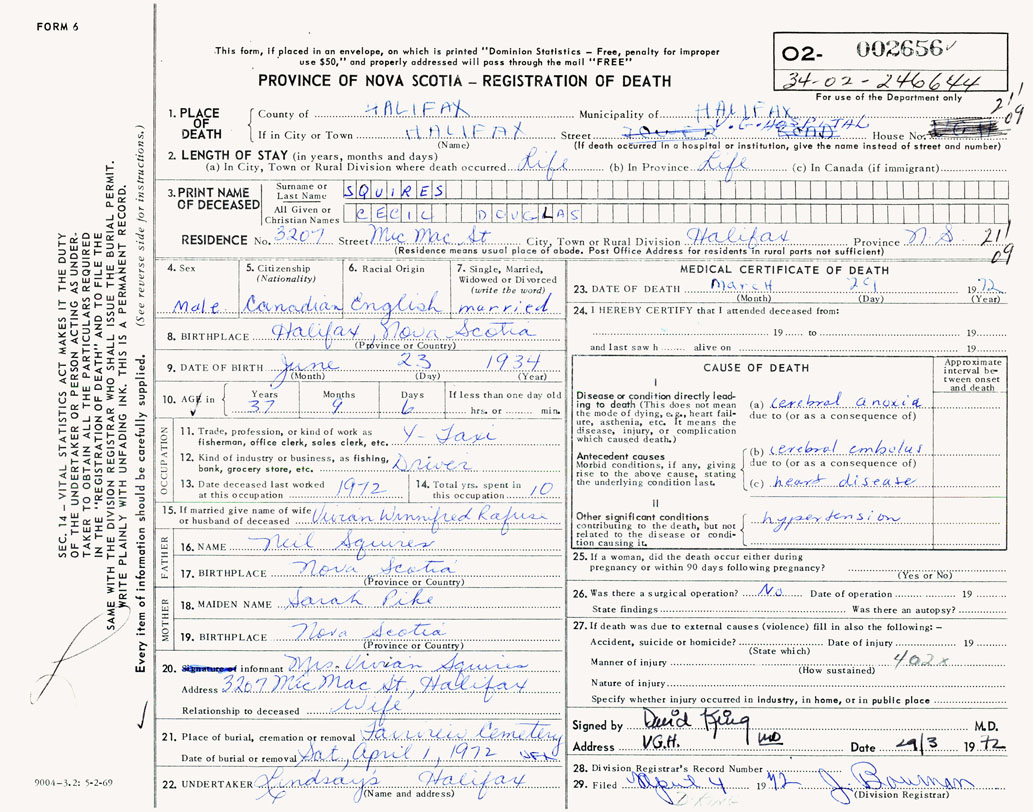 FORM 6
This form, if placed in an envelope, on which is printed "Dominion Statistics – Free, penalty for improper
use $50," and properly addressed will pass through the mail "FREE"
PROVINCE OF NOVA SCOTIA – REGISTRATION OF DEATH
O2- 002656
34-02-246644
For use of the Department only
21/09
1. PLACE OF DEATH
County of HALIFAX Municipality of HALIFAX
If in City or Town HALIFAX Street V.G. HOSPITAL House No.
(Name) (If death occurred in a hospital or institution, give the name instead of street and number)
2. LENGTH OF STAY (in years, months and days)
(a) In City, Town or Rural Division where death occurred Life (b) In Province Life (c) In Canada (if immigrant)
3. PRINT NAME OF DECEASED
Surname or Last Name SQUIRES
All Given or Christian Names CECIL DOUGLAS
RESIDENCE No. 3207 Street Mic Mac St City, Town or Rural Division Halifax Province N.S. 21/09
(Residence means usual place of abode. Post Office Address for residents in rural parts not sufficient)
4. Sex Male
5. Citizenship (Nationality) Canadian
6. Racial Origin English
7. Single, Married, Widowed or Divorced (write the word) married
8. BIRTHPLACE Halifax, Nova Scotia
(Province or Country)
9. DATE OF BIRTH June 23 1934
(Month) (Day) (Year)
10. AGE in Years 37 Months 9 Days 6 If less than one day old
hrs. or min.
OCCUPATION
11. Trade, profession, or kind of work as fisherman, office clerk, sales clerk, etc. Y-Taxi
12. Kind of industry or business, as fishing, bank, grocery store, etc. Driver
13. Date deceased last worked at this occupation 1972
14. Total yrs. spent in this occupation 10
15. If married give name of wife or husband of deceased Vivian Winnifred Rafuse
FATHER
16. NAME Neil Squires
17. BIRTHPLACE Nova Scotia
(Province or Country)
MOTHER
18. MAIDEN NAME Sarah Pike
19. BIRTHPLACE Nova Scotia
(Province or Country)
20. Signature of informant Mrs. Vivian Squires
Address 3207 Mic Mac St, Halifax
Relationship to deceased Wife
21. Place of burial, cremation or removal Fairview Cemetery
Date of burial or removal Sat, April 1, 1972
22. UNDERTAKER Lindsay's Halifax
(Name and address)
MEDICAL CERTIFICATE OF DEATH
23. DATE OF DEATH March 29 1972
(Month) (Day) (Year)
24. I HEREBY CERTIFY that I attended deceased from:
19 to 19
and last saw h alive on 19
CAUSE OF DEATH
Approximate interval between onset and death
I
Disease or condition directly leading to death (This does not mean the mode of dying, e.g., heart failure, asthenia, etc. It means the disease, injury, or complication which caused death.)
(a) cerebral anoxia
due to (or as a consequence of)
Antecedent causes
Morbid conditions, if any, giving rise to the above cause, stating the underlying condition last.
(b) cerebral embolus
due to (or as a consequence of)
(c) heart disease
II
Other significant conditions
contributing to the death, but not related to the disease or condition causing it.
hypertension
25. If a woman, did the death occur either during
pregnancy or within 90 days following pregnancy?
(Yes or No)
26. Was there a surgical operation? No. Date of operation 19
State findings Was there an autopsy?
27. If death was due to external causes (violence) fill in also the following: –
Accident, suicide or homicide? Date of injury 19
(State which)
Manner of injury 402x
(How sustained)
Nature of injury
Specify whether injury occurred in industry, in home, or in public place
Signed by David King M.D.
Address V.G.H. MD Date 29/3 1972
28. Division Registrar's Record Number
29. Filed April 4 1972 J. Bauman
(Division Registrar)
SEC. 14 – VITAL STATISTICS ACT MAKES IT THE DUTY
OF THE UNDERTAKER OR PERSON ACTING AS UNDER-
TAKER TO OBTAIN ALL THE PARTICULARS REQUIRED
IN THE "REGISTRATION OF DEATH" AND TO FILE THE
SAME WITH THE DIVISION REGISTRAR WHO SHALL ISSUE THE BURIAL PERMIT.
WRITE PLAINLY WITH UNFADING INK. THIS IS A PERMANENT RECORD.
Every item of information should be carefully supplied. (See reverse side for instructions.)
9004-3.2: 5-2-69